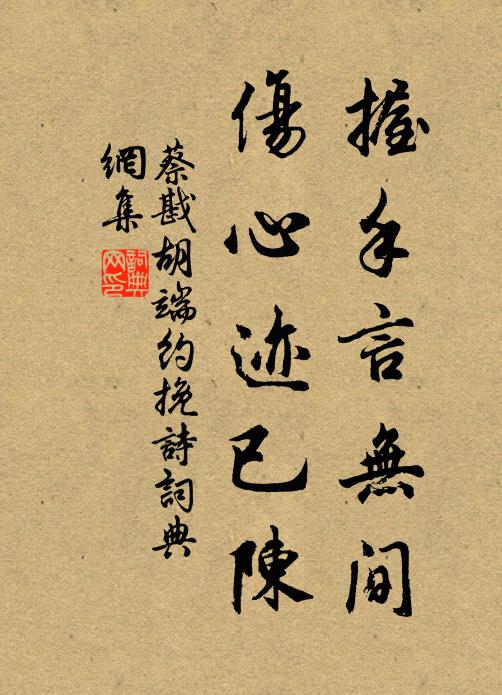 握手言無间
傷心迹已陳
蔡戡胡端约挽詩詞典
網集
詞典
网印